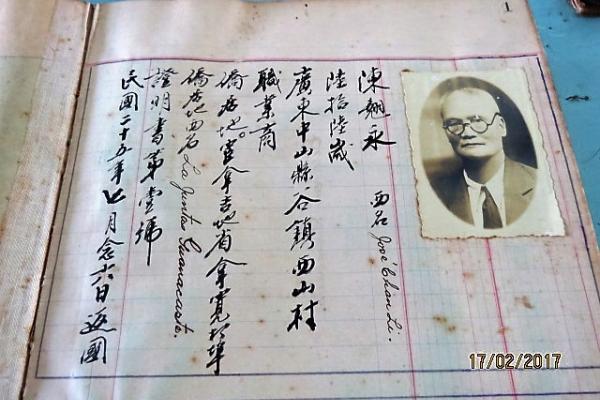 1
陳永 西名 José Chan Li.
陸拾陸歲
廣東中山縣谷鎮西山村
職業商
僑居地。官拿吉地省拿寬打埠
僑居地西名 La Junta Guanacaste.
證明書第壹號
民國二十五年七月念六日返國
17/02/2017